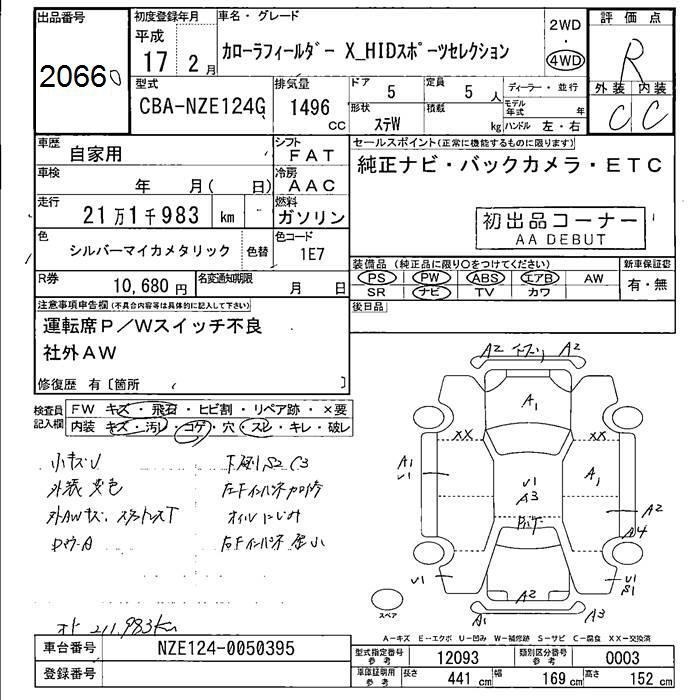 出品番号
20660
初度登録年月
平成
17 2月
車名・グレード
カローラフィールダー X_HIDスポーツセレクション
2WD
・
4WD
評価点
R
外装 内装
C C
型式
CBA-NZE124G
排気量
1496
CC
ドア
5
定員
5 人
形状
ステW
積載
kg
ディーラー・並行
モデル年式 年
ハンドル 左・右
車歴
自家用
シフト
FAT
車検
年 月( 日)
冷房
AAC
走行
21万1千983 km
燃料
ガソリン
色
シルバーマイカメタリック
色替
色コード
1E7
R券
10,680円
名変通知期限
月 日
セールスポイント(正常に機能するものに限ります)
純正ナビ・バックカメラ・ETC
初出品コーナー
AA DEBUT
装備品(純正品に限り○をつけてください)
PS PW ABS エアB AW
SR ナビ TV カワ
新車保証書
有・無
後日品
注意事項申告欄(不具合内容等は具体的に記入して下さい)
運転席P/Wスイッチ不良
社外AW
修復歴 有〔箇所 〕
検査員記入欄
FW キズ・飛石・ヒビ割・リペア跡・×要
内装 キズ・汚レ・コゲ・穴・スレ・キレ・破レ
小キズU
下廻りS2 C3
外装 変色
オイルにじみ
オド 211,983km
A2 A2
A1
XX XX
A1
U1
U1
A3
A1
A2
A4
U1
A2
U1
S1
A1 A3
スペア
A-キズ E-エクボ U-凹み W-補修跡 S-サビ C-腐食 XX-交換済
車台番号
NZE124-0050395
登録番号
型式指定番号
参考
12093
類別区分番号
参考
0003
車庫証明用
参考
長さ 441 cm 幅 169 cm 高さ 152 cm